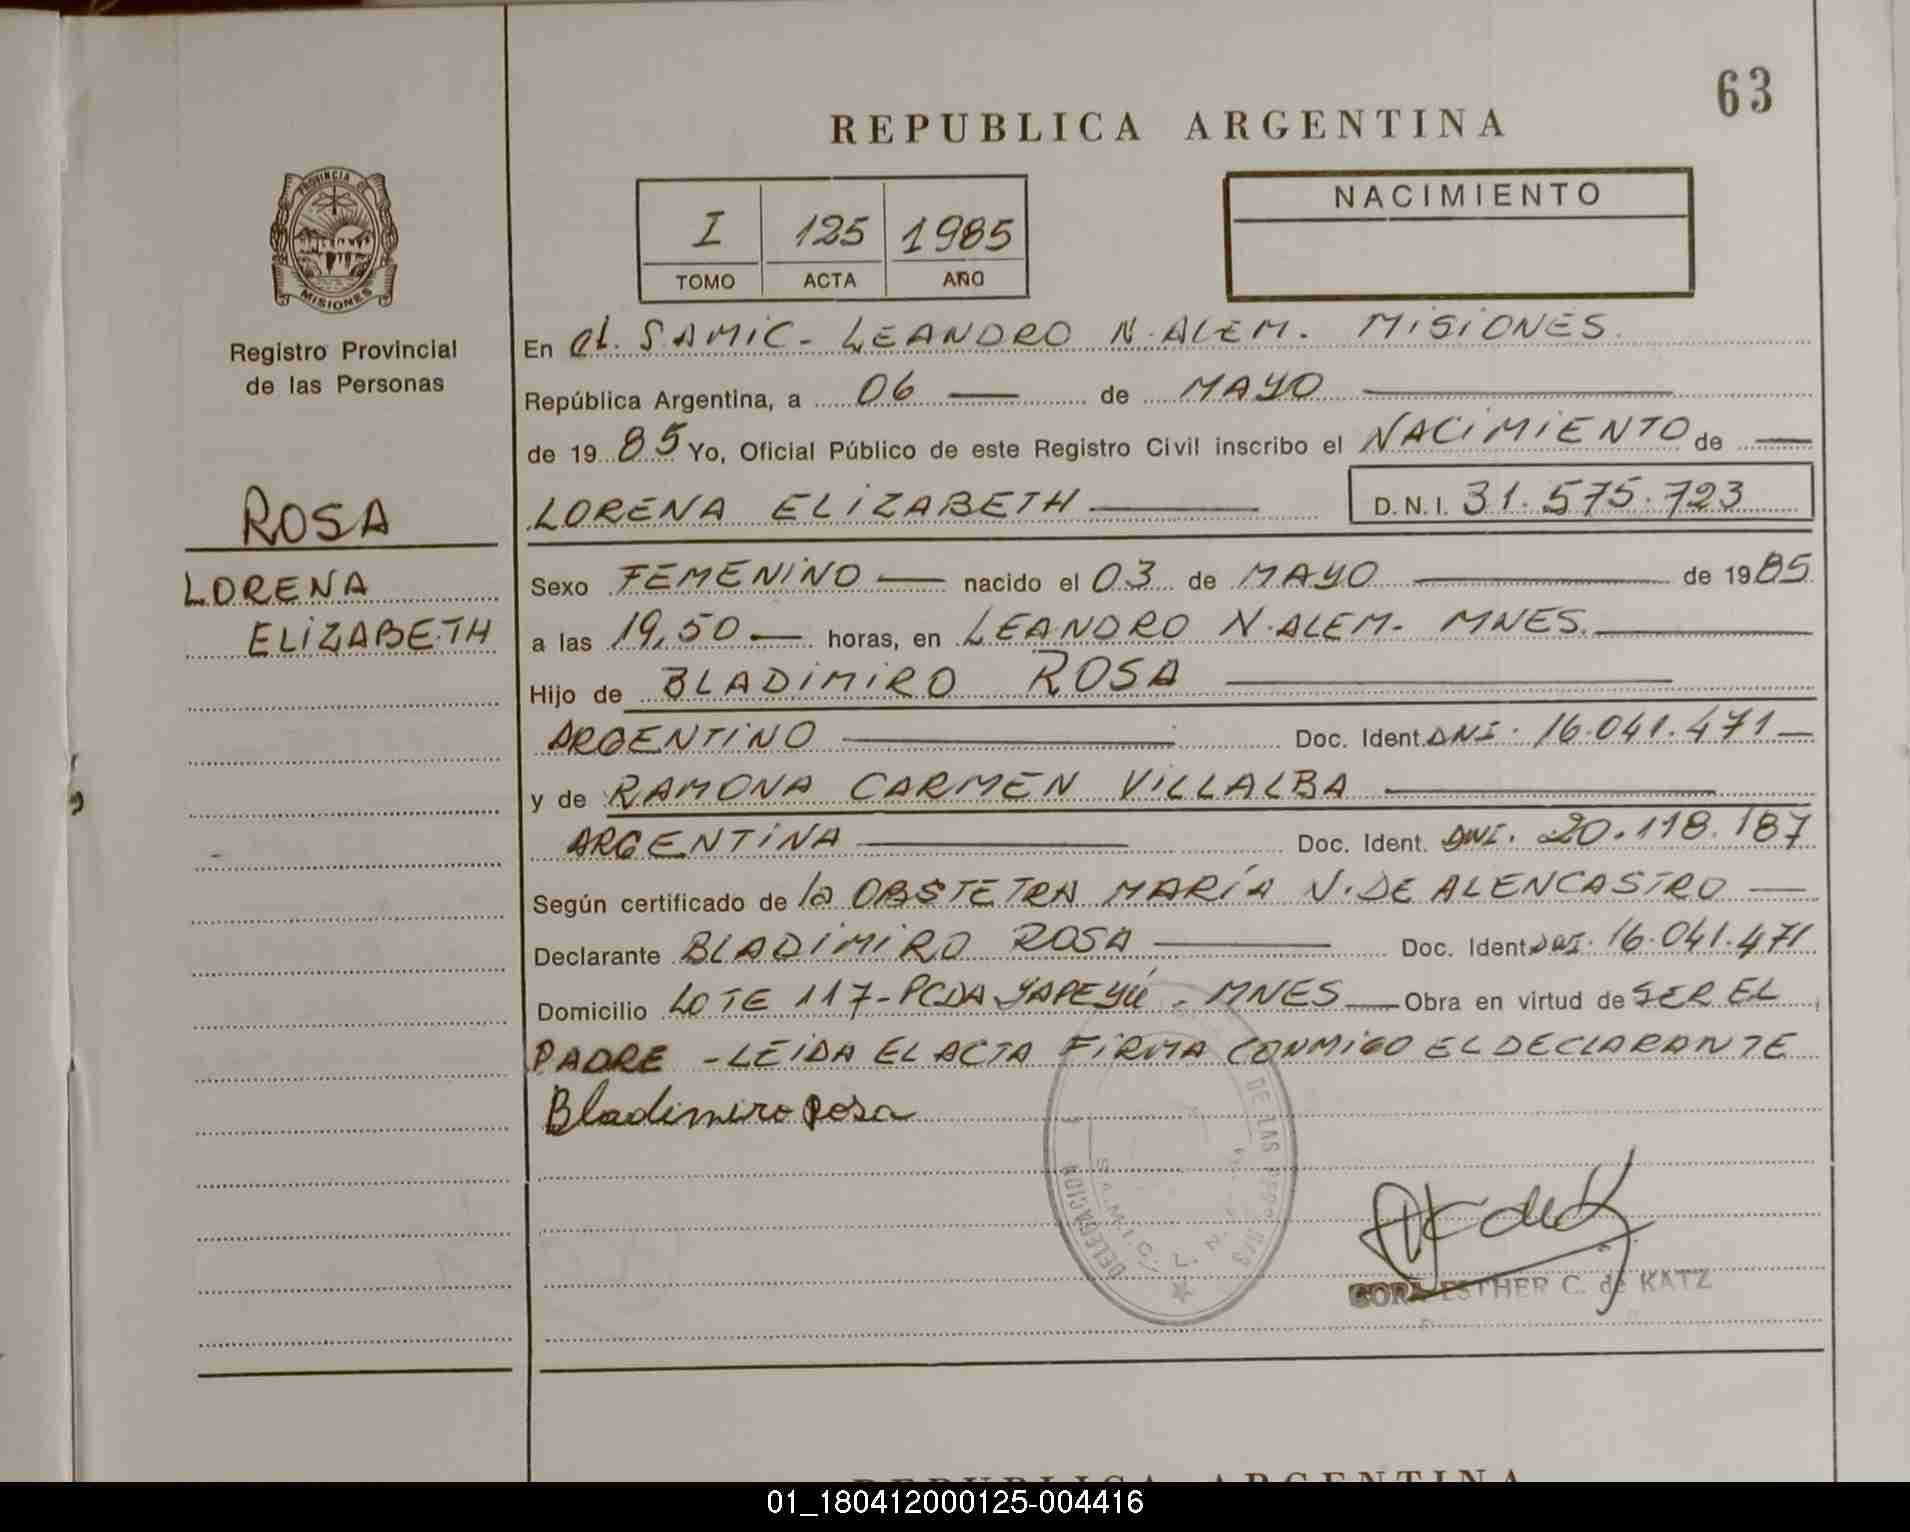 63
REPUBLICA ARGENTINA
PROVINCIA DE
MISIONES
Registro Provincial
de las Personas
I 125 1985
TOMO ACTA AÑO
NACIMIENTO
En el. SAMIC - LEANDRO N. ALEM. MISIONES.
República Argentina, a 06 de MAYO
de 1985 Yo, Oficial Público de este Registro Civil inscribo el NACIMIENTO de
LORENA ELIZABETH D.N.I. 31.575.723
ROSA
LORENA
ELIZABETH
Sexo FEMENINO nacido el 03 de MAYO de 1985
a las 19,50 horas, en LEANDRO N. ALEM - MNES.
Hijo de BLADIMIRO ROSA
ARGENTINO Doc. Ident. DNI. 16.041.471
y de RAMONA CARMEN VILLALBA
ARGENTINA Doc. Ident. DNI. 20.118.187
Según certificado de la OBSTETRA MARÍA V. DE ALENCASTRO
Declarante BLADIMIRO ROSA Doc. Ident. DNI. 16.041.471
Domicilio LOTE 117 - PCDA YAPEYÚ - MNES Obra en virtud de SER EL
PADRE - LEIDA EL ACTA FIRMA CONMIGO EL DECLARANTE
Bladimiro Rosa
DELEGACION DE LAS
S.A.M.I.C. L. N.
CORA ESTHER C. de KATZ
REPUBLICA ARGENTINA
01_180412000125-004416